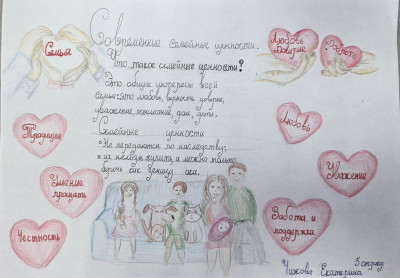 Современные семейные ценности.
Что такое семейные ценности?
Это общие интересы всей
семьи: это любовь, верность, доверие,
уважение, понимание, дом, дети.
Семейные ценности
Не передаются по наследству;
их нельзя купить, и можно только
беречь как зеницу ока.
Семья
Любовь
Доверие
Доброта
Традиции
Умение
прощать
Честность
Любовь
Уважение
Забота и
поддержка
Чижова Екатерина
5 отряд